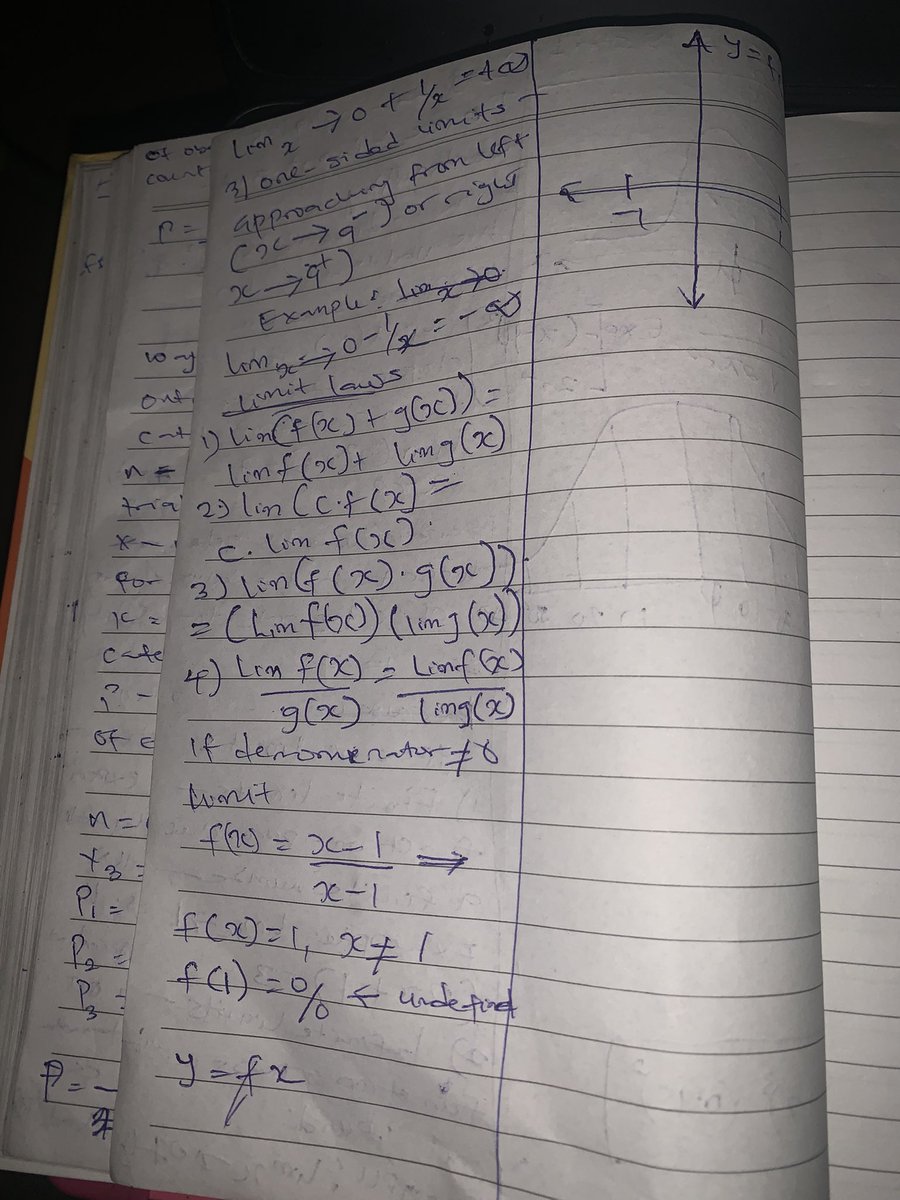 lim x → 0 + 1/x = +∞
3) one-sided limits -
approaching from left
(x → a⁻) or right
x → a⁺)
Example: lim x→0
lim x → 0 - 1/x = - ∞
limit laws
1) lim(f(x) + g(x)) =
limf(x) + limg(x)
2) lim (c.f(x) =
c. lim f(x)
3) lim(f(x) . g(x))
= (limf(x)) (limg(x))
4) lim f(x)/g(x) = limf(x)/limg(x)
If denominator ≠ 0
limit
f(x) = x-1/x-1 ⇒
f(x) = 1, x ≠ 1
f(1) = 0/0 ← undefind
y = fx
y =
-1
of
count
P =
fs
way
out
cat
n =
tria
x -
for
x =
cate
P -
of
n =
x₃ =
P₁ =
P₂ =
P₃ =
P = -